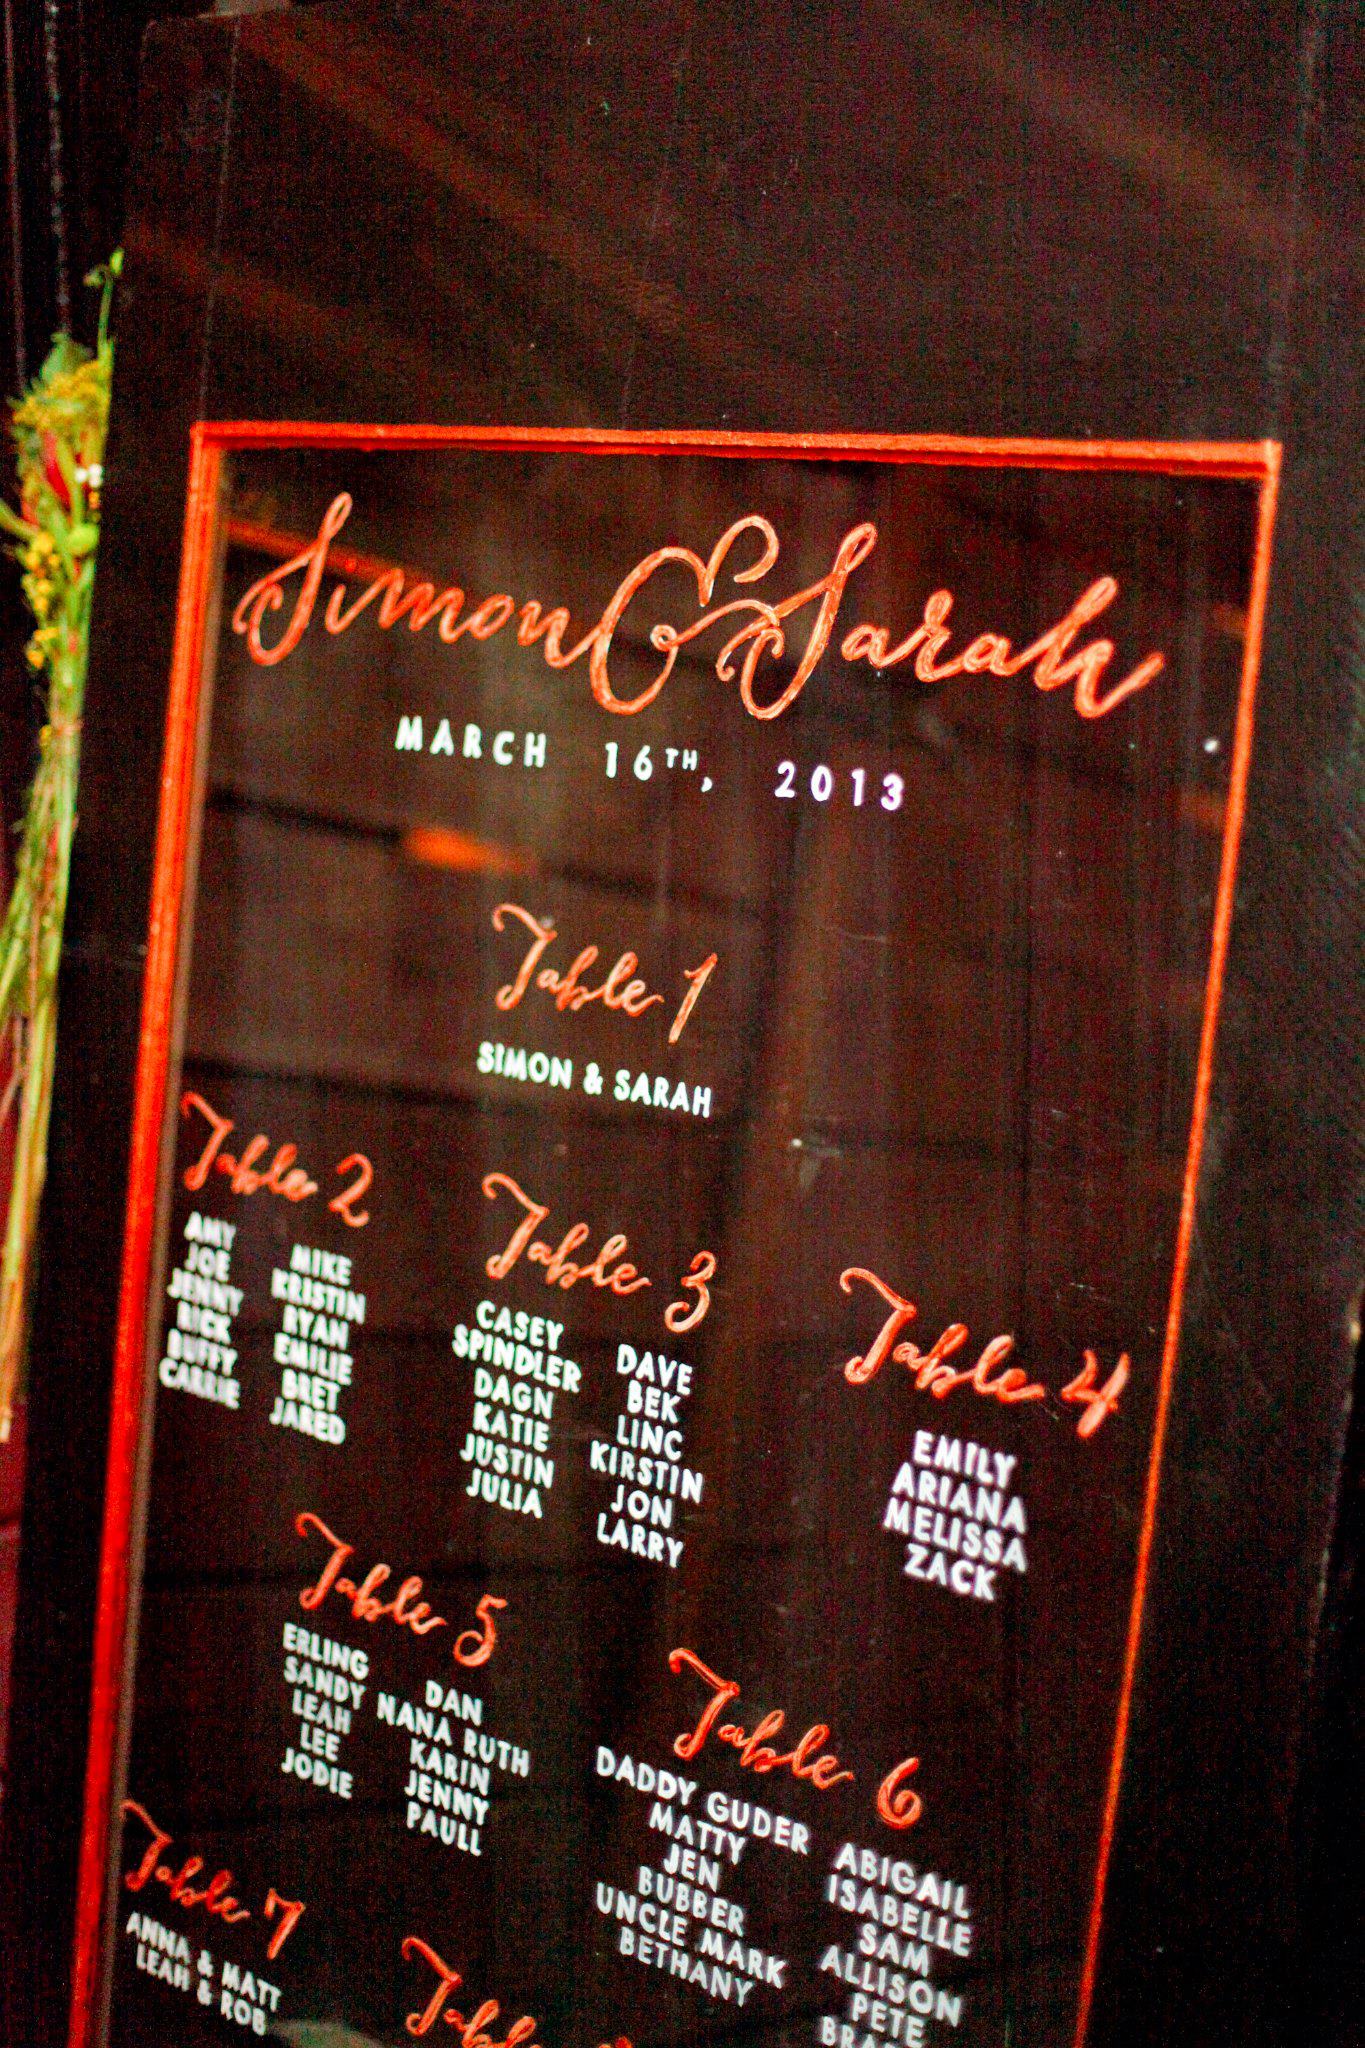 Simon & Sarah
MARCH 16TH, 2013
Table 1
SIMON & SARAH
Table 2
AMY
JOE
JENNY
RICK
BUFFY
CARRIE
MIKE
KRISTIN
RYAN
EMILIE
BRET
JARED
Table 3
CASEY
SPINDLER
DAGN
KATIE
JUSTIN
JULIA
DAVE
BEK
LINC
KIRSTIN
JON
LARRY
Table 4
EMILY
ARIANA
MELISSA
ZACK
Table 5
ERLING
SANDY
LEAH
LEE
JODIE
DAN
NANA RUTH
KARIN
JENNY
PAULL
Table 6
DADDY GUDER
MATTY
JEN
BUBBER
UNCLE MARK
BETHANY
ABIGAIL
ISABELLE
SAM
ALLISON
PETE
Table 7
ANNA & MATT
LEAH & ROB
Table